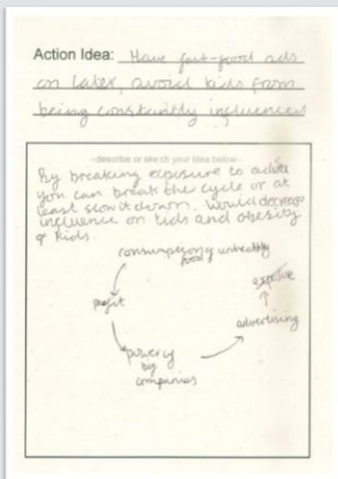 Action Idea: Have fast-food ads
on later, avoid kids from
being constantly influenced
--describe or sketch your idea below--
By breaking exposure to
you can break the cycle or at
least slow it down. Would decrease
influence on kids and obesity
of kids.
consumption of unhealthy
food
exposure
profit
advertising
power of
big
companies